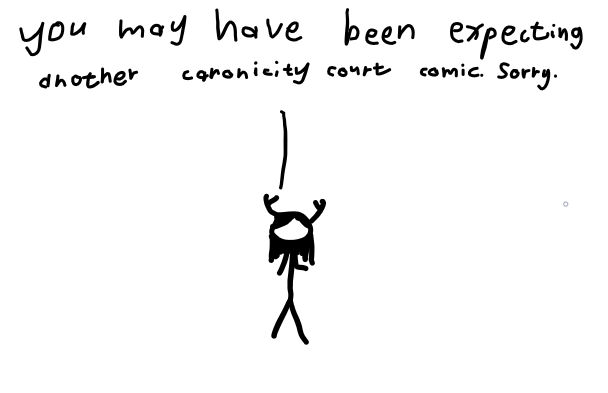 you may have been expecting
another canonicity court comic. Sorry.